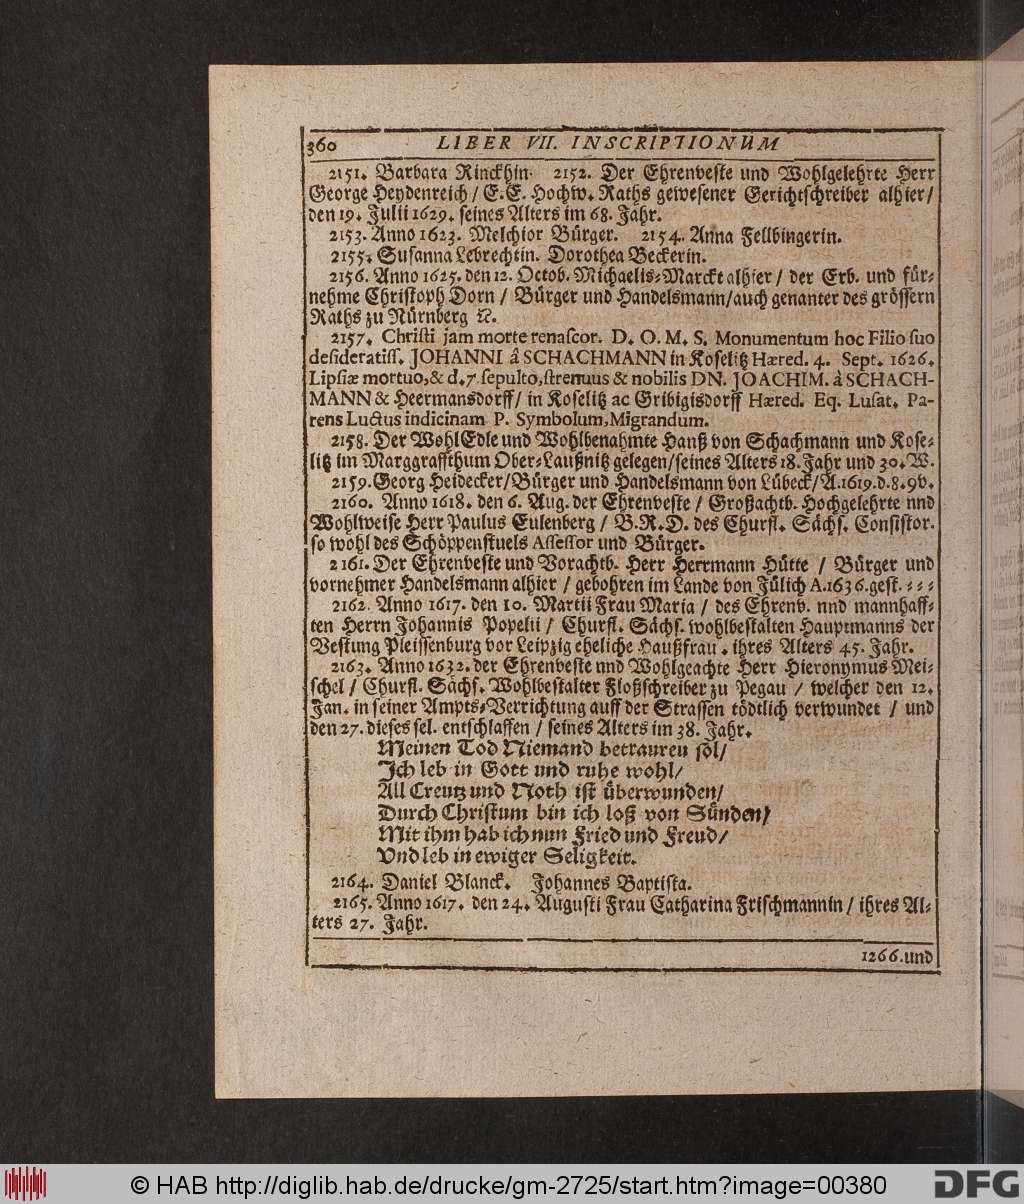 360 LIBER VII. INSCRIPTIONUM
2151. Barbara Rinckhin. 2152. Der Ehrenveste und Wohlgelehrte Herr
George Heydenreich / E.E. Hochw. Raths gewesener Gerichtschreiber alhier/
den 19. Julii 1629. seines Alters im 68. Jahr.
2153. Anno 1623. Melchior Bürger. 2154. Anna Fellbingerin.
2155. Susanna Lebrechtin. Dorothea Beckerin.
2156. Anno 1625. den 12. Octob. Michaelis-Marckt alhier / der Erb. und für-
nehme Christoph Dorn / Bürger und Handelsmann/auch genanter des grössern
Raths zu Nürnberg ꝛc.
2157. Christi jam morte renascor. D. O. M. S. Monumentum hoc Filio suo
desideratiss. JOHANNI â SCHACHMANN in Koselitz Hæred. 4. Sept. 1626.
Lipsiæ mortuo,& d.7 sepulto,strenuus & nobilis DN. JOACHIM. à SCHACH-
MANN & Heermansdorff/ in Koselitz ac Gribigisdorff Hæred. Eq. Lusat. Pa-
rens Luctus indicinam P. Symbolum,Migrandum.
2158. Der WohlEdle und Wohlbenahmte Hanß von Schachmann und Kose-
litz im Marggraffthum Ober-Laußnitz gelegen/seines Alters 18. Jahr und 30. W.
2159. Georg Heidecker/Bürger und Handelsmann von Lübeck/A.1619.d.8.9v.
2160. Anno 1618. den 6. Aug. der Ehrenveste / Großachtb. Hochgelehrte nnd
Wohlweise Herr Paulus Eulenberg / B.R.D. des Churfl. Sächs. Consistor.
so wohl des Schöppenstuels Assessor und Bürger.
2161. Der Ehrenveste und Vorachtb. Herr Herrmann Hütte / Bürger und
vornehmer Handelsmann alhier / gebohren im Lande von Jülich A.1636.gest. - - -
2162. Anno 1617. den 10. Martii Frau Maria / des Ehrenv. nnd mannhaff-
ten Herrn Johannis Popelii / Churfl. Sächs. wohlbestalten Hauptmanns der
Vestung Pleissenburg vor Leipzig eheliche Haußfrau . ihres Alters 45. Jahr.
2163. Anno 1632. der Ehrenveste nnd Wohlgeachte Herr Hieronymus Mei-
schel / Churfl. Sächs. Wohlbestalter Floßschreiber zu Pegau / welcher den 12.
Jan. in seiner Ampts-Verrichtung auff der Strassen tödtlich verwundet / und
den 27. dieses sel. entschlaffen / seines Alters im 38. Jahr.
Meinen Tod Niemand betrauren sol/
Ich leb in Gott und ruhe wohl/
All Creutz und Noth ist überwunden/
Durch Christum bin ich loß von Sünden/
Mit ihm hab ich nun Fried und Freud/
Vnd leb in ewiger Seligkeit.
2164. Daniel Blanck. Johannes Baptista.
2165. Anno 1617. den 24. Augusti Frau Catharina Frischmannin / ihres Al-
ters 27. Jahr.
1266.und
© HAB http://diglib.hab.de/drucke/gm-2725/start.htm?image=00380
DFG